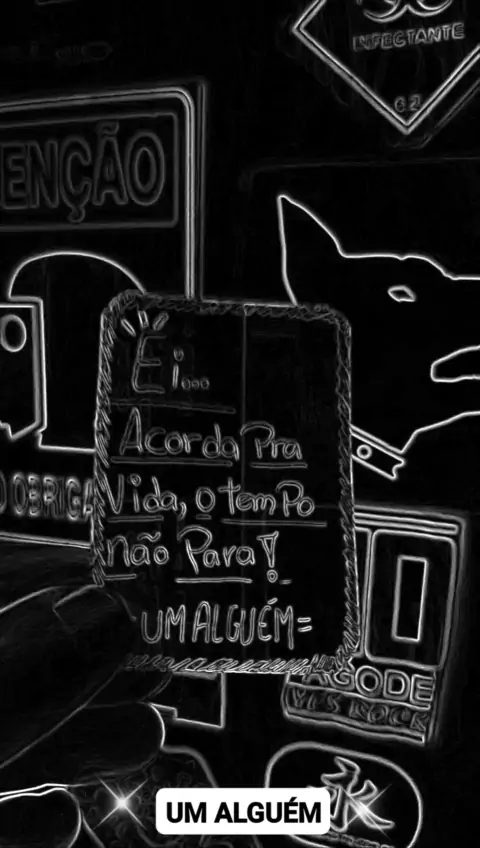 INFECTANTE
6.2
ENÇÃO
Ei...
Acorda Pra
Vida, o tempo
não Para!
UM ALGUÉM=
O OBRIGA
AGODE
YES ROCK
永
UM ALGUÉM